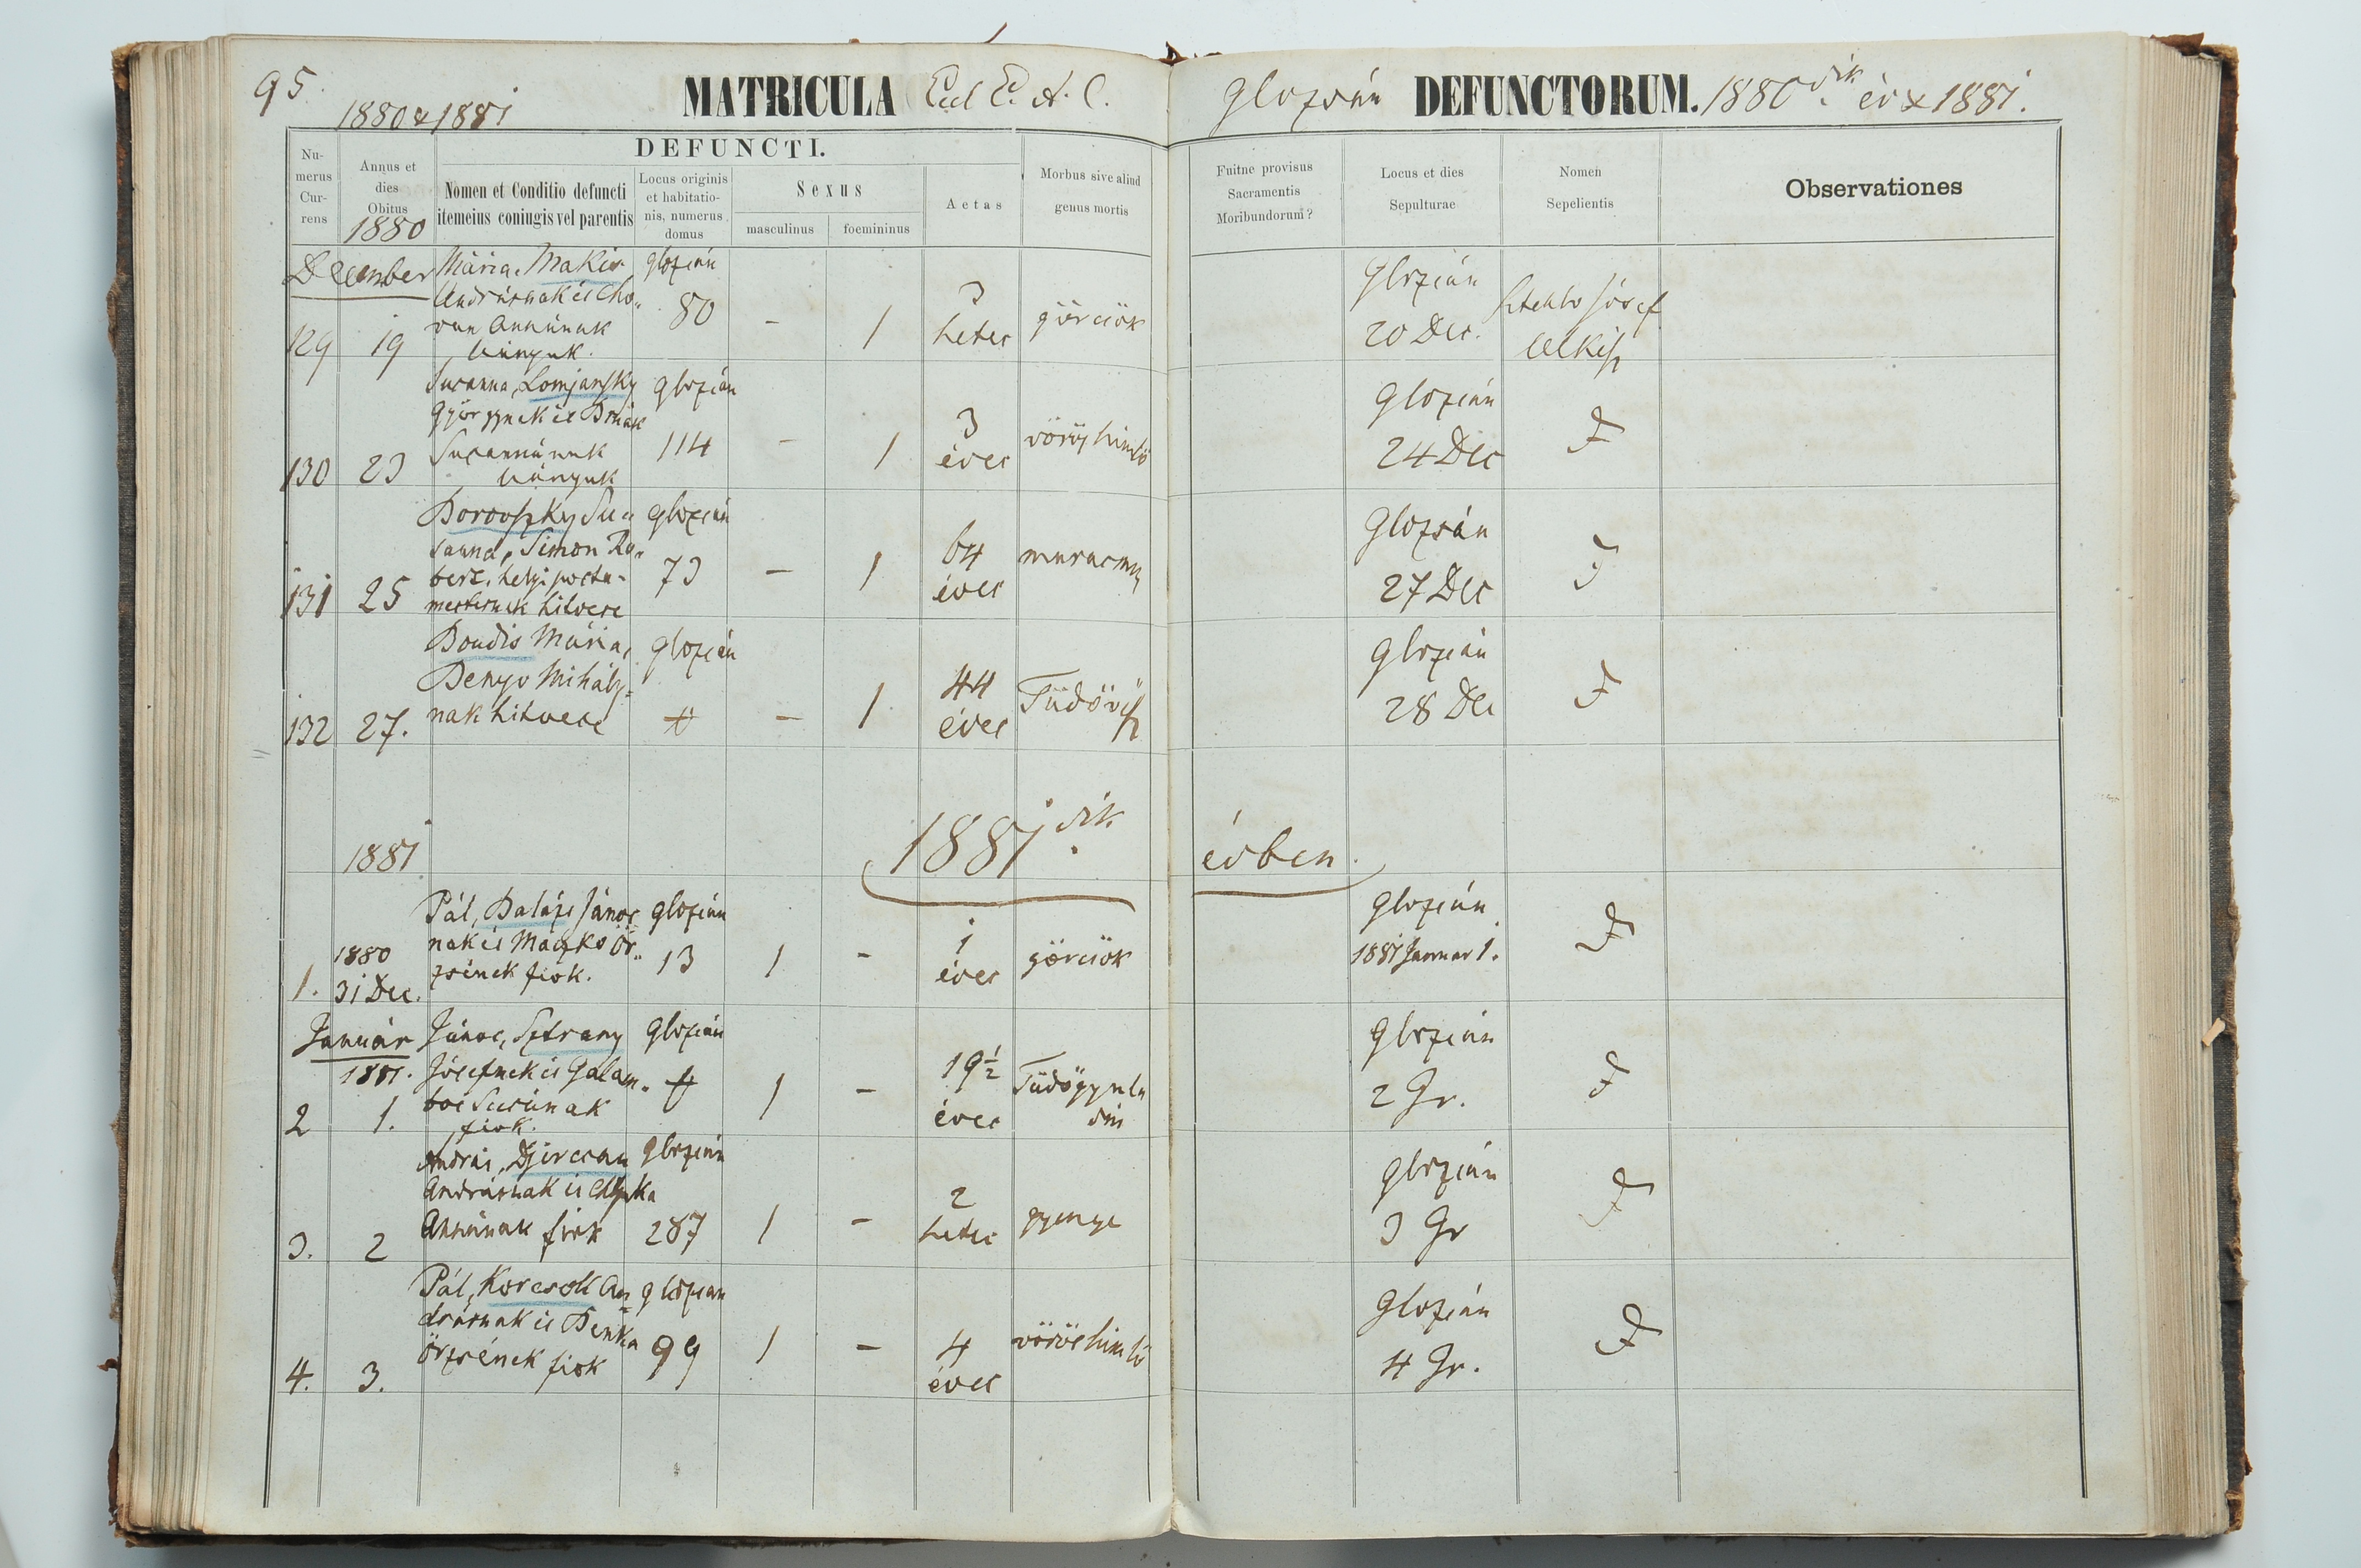 95.
1880 & 1881
MATRICULA Eccl E. A. C.
Glozsán DEFUNCTORUM. 1880dik év & 1881.
DEFUNCTI.
Nu-
merus
Cur-
rens
Annus et
dies
Obitus
1880
Nomen et Conditio defuncti
itemeius coniugis vel parentis
Locus originis
et habitatio-
nis, numerus
domus
Sexus
masculinus
foemininus
Aetas
Morbus sive aliud
genus mortis
Fuitne provisus
Sacramentis
Moribundorum?
Locus et dies
Sepulturae
Nomen
Sepelientis
Observationes
December
129 19
Mária, Makis
Andrásnak és Cho-
van Annának
leányuk.
Glozsán
80
-
1
3
hetes
görcsök
Glozsán
20 Dec.
József
lelkész
130 23
Susanna, Lomjanszky
Györgynek és
Susannának
leányuk
Glozsán
114
-
1
3
éves
vörös himlö
Glozsán
24 Dec
131 25
Borovszky Su-
sanna, Simon Ro-
bert, helyi posta-
mesternek hitvese
Glozsán
73
-
1
64
éves
Glozsán
27 Dec
132 27.
Boudis Mária,
Benyo Mihály-
nak hitvese
Glozsán
-
1
44
éves
Tüdövész
Glozsán
28 Dec
1881
1881dik évben.
1.
1880
31 Dec.
Pál, Balázs János-
nak és Maczko Ör-
zsének fiok.
Glozsán
13
1
-
1
éves
görcsök
Glozsán
1881 Januar 1.
Január
1881.
2 1.
János, Sztrany
Józsefnek és Galam-
bos Susának
fiok.
Glozsán
1
-
19 1/2
éves
Glozsán
2 Jr.
3. 2
András,
Andrásnak és
Annának fiok
Glozsán
287
1
-
2
hetes
gyenge
Glozsán
3 Jr
4. 3.
Pál, Korcsok An-
drásnak és Benka
Örzsének fiok
Glozsán
99
1
-
4
éves
vörös himlö
Glozsán
4 Jr.